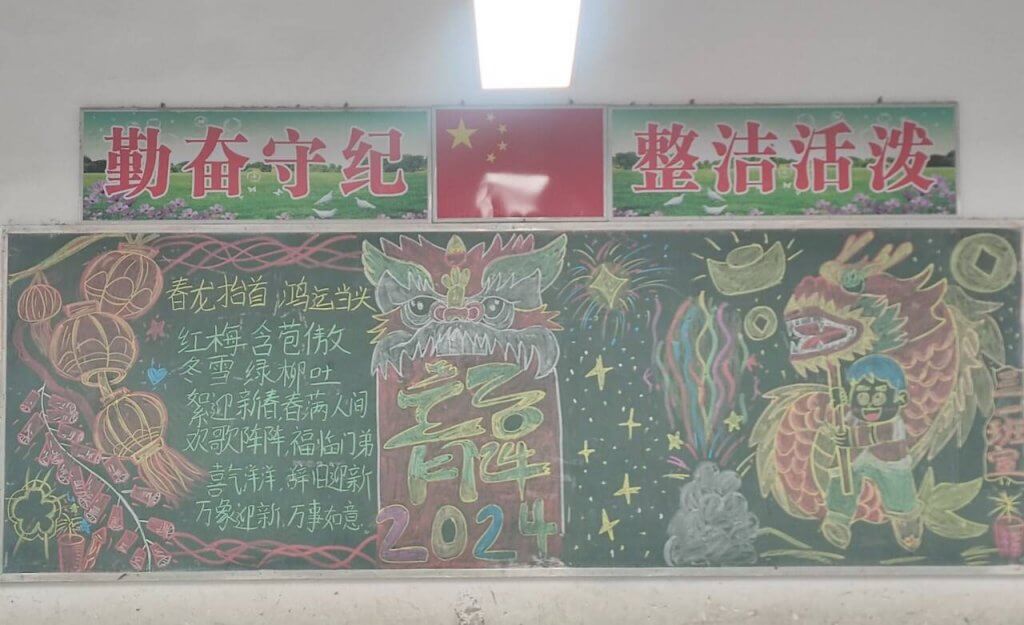 勤奋守纪
整洁活泼
春龙抬首 鸿运当头
红梅含苞傲
冬雪 绿柳吐
絮迎新春春满人间
欢歌阵阵 福临门弟
喜气洋洋 辞旧迎新
万象迎新 万事如意
龍
2024